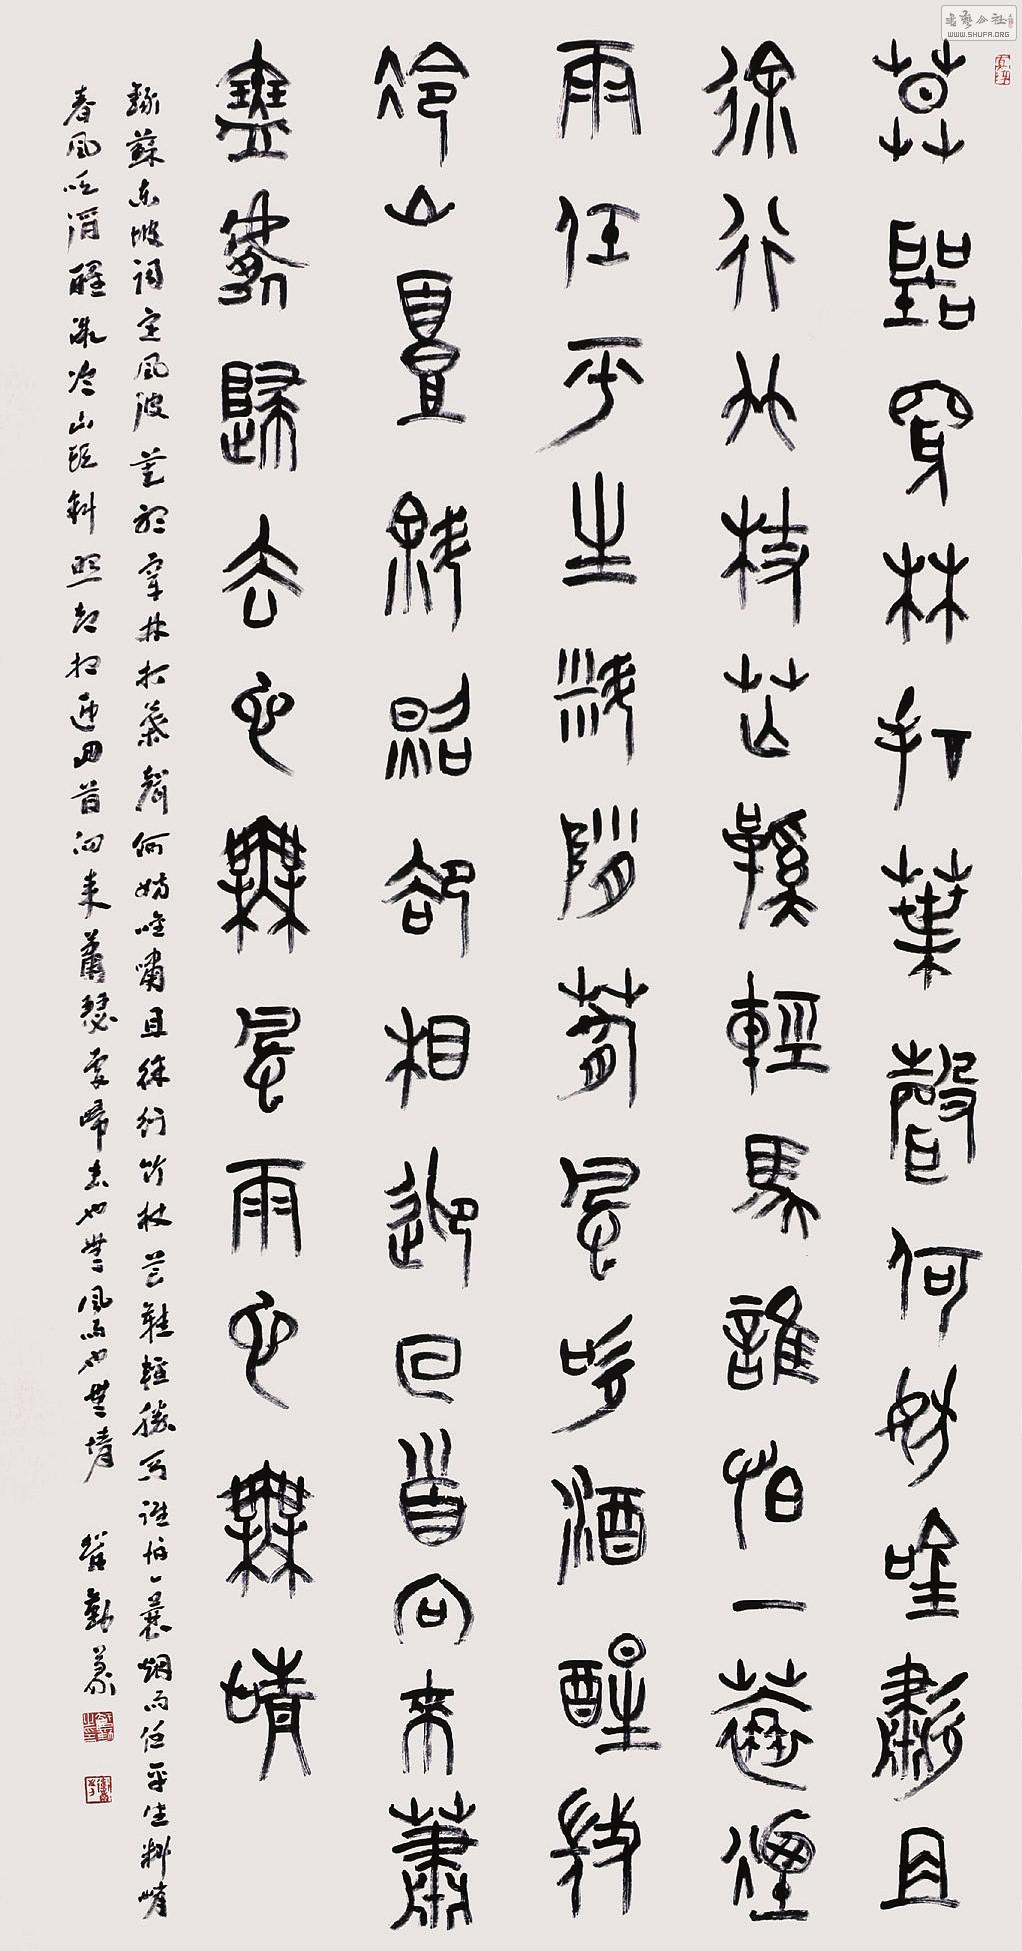 莫聽穿林打葉聲何妨唫嘯且
徐行竹杖芒鞵輕馬誰怕一蓑煙
雨任平生料峭春風吹酒醒微
冷山頭斜照卻相迎回首向來蕭
瑟處歸去也無風雨也無晴
錄蘇東坡詞定風波莫聽穿林打葉聲何妨唫嘯且徐行竹杖芒鞋輕勝馬誰怕一蓑烟雨任平生料峭
春風吹酒醒微冷山頭斜照却相迎回首向來蕭瑟處歸去也無風雨也無晴 勤篆
WWW.SHUFA.ORG